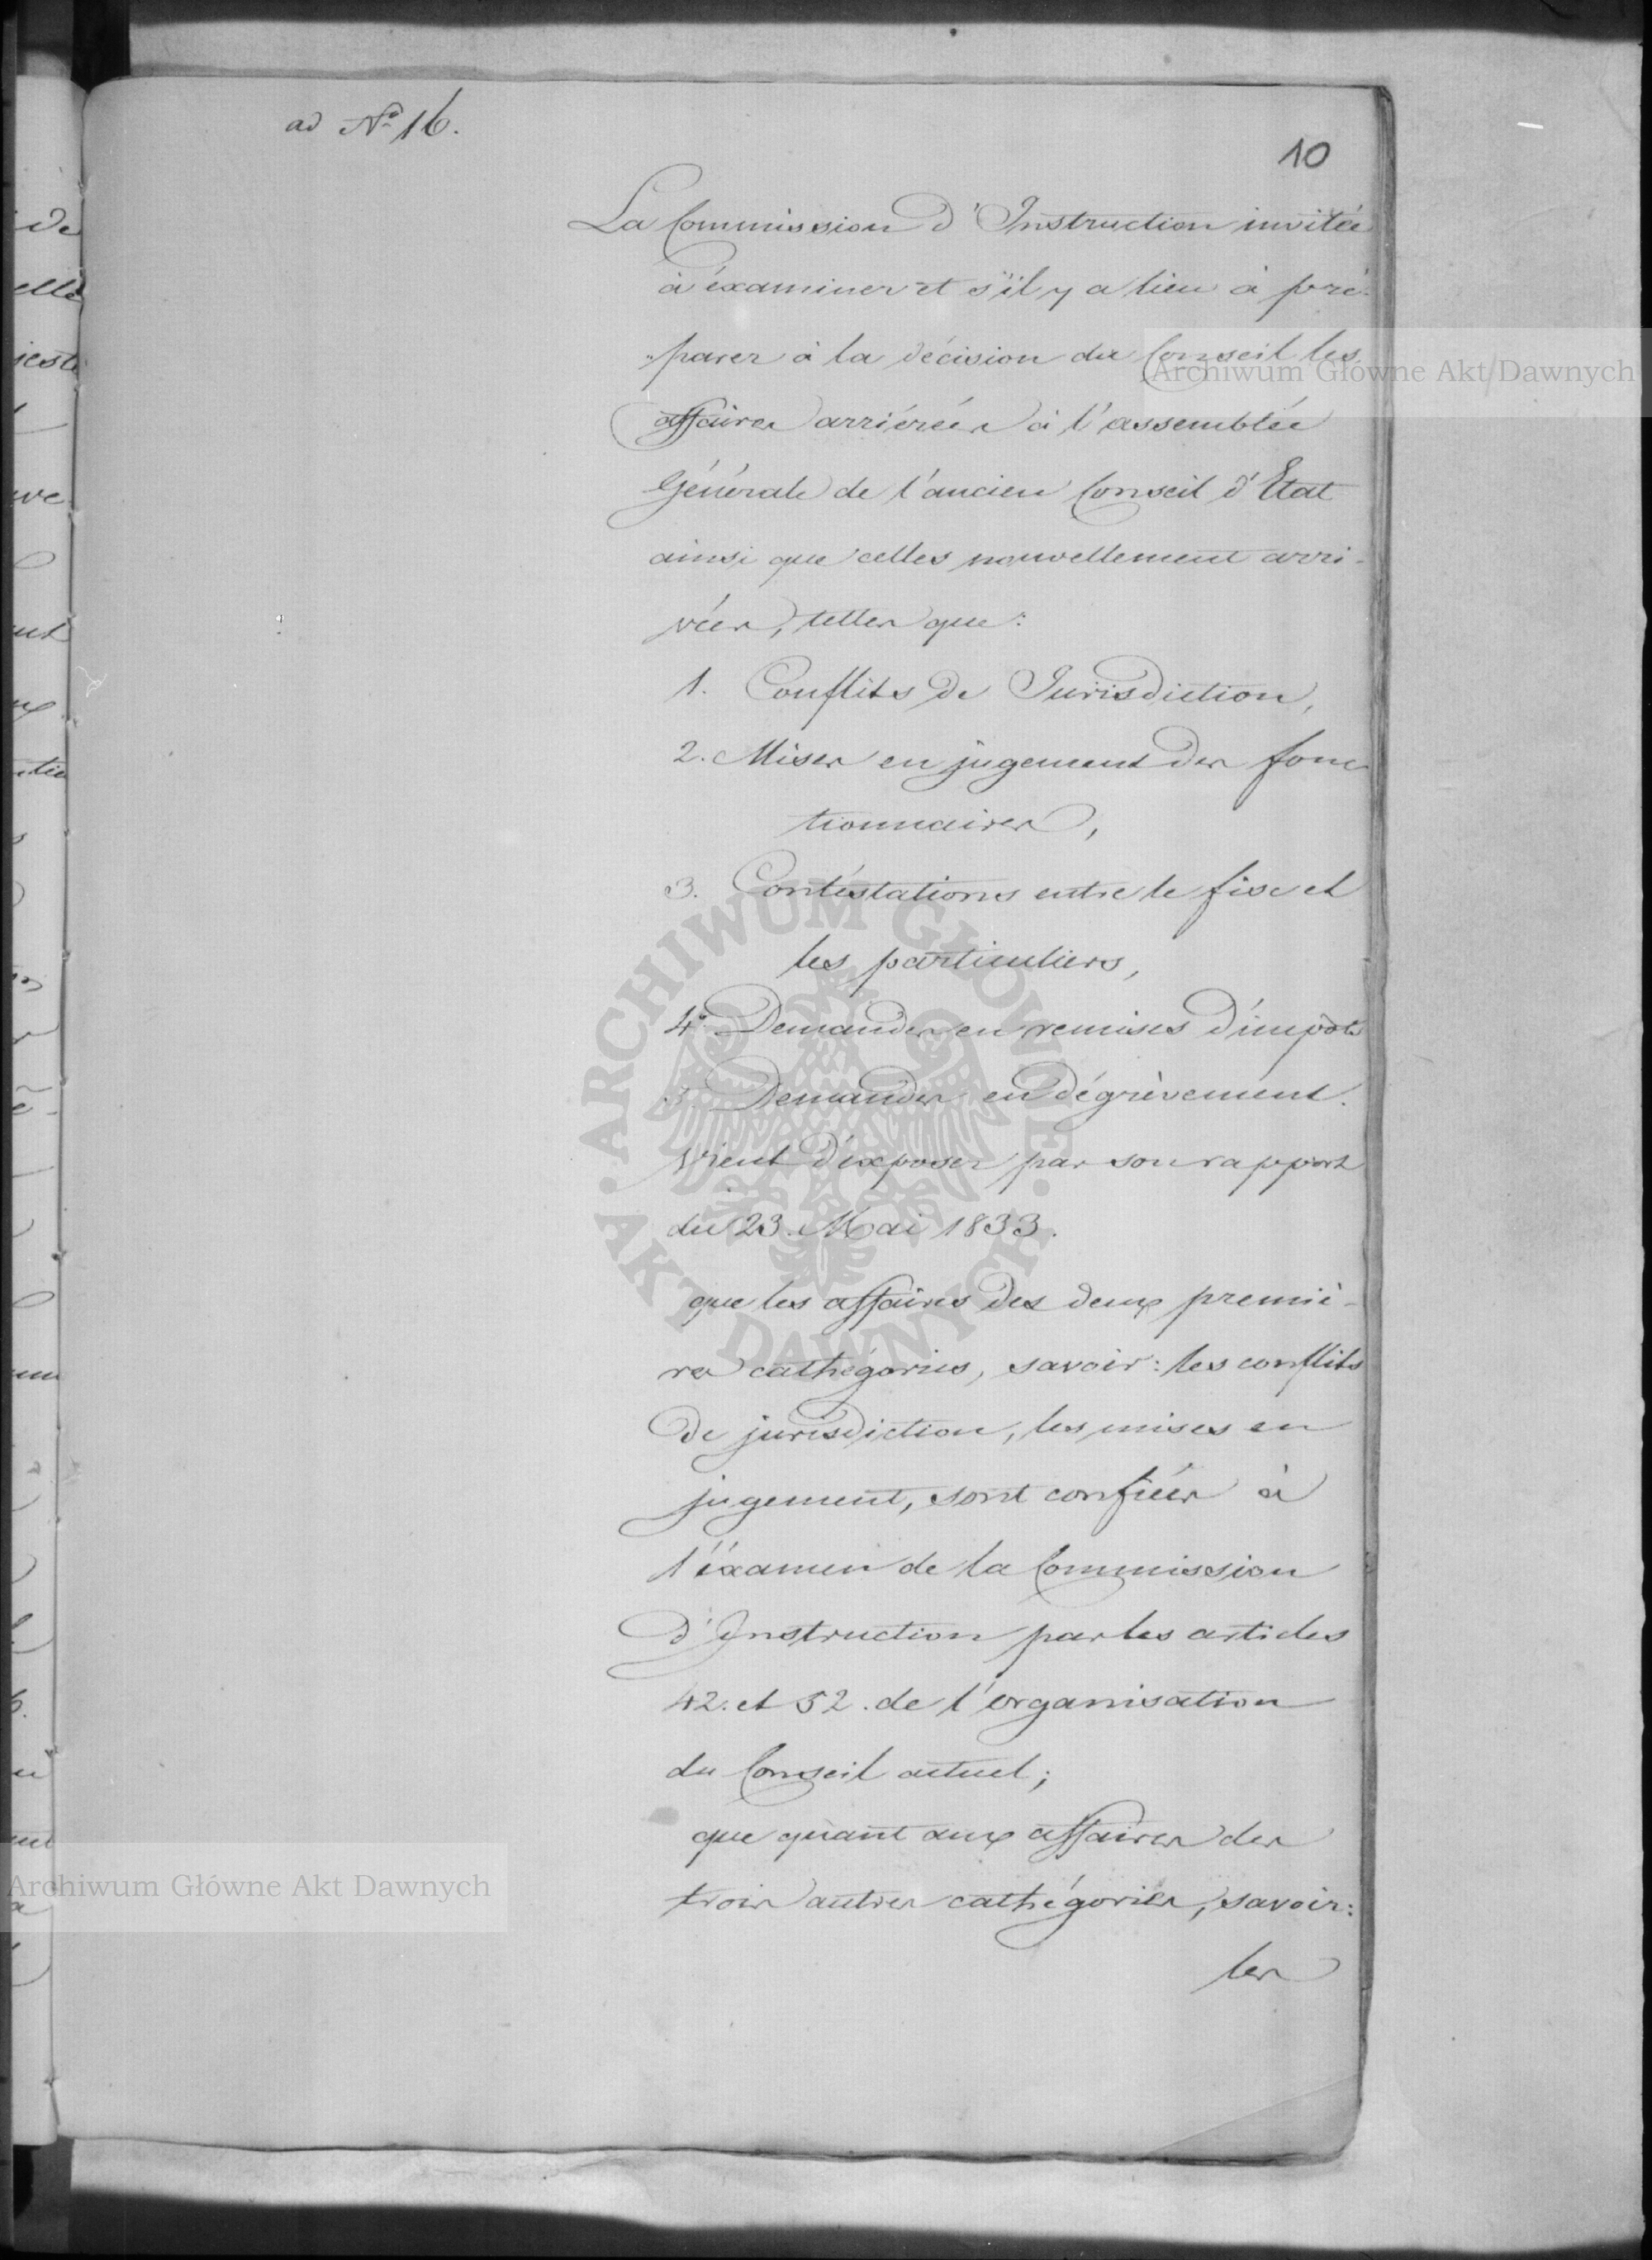 ad No 16.
10
La Commission d'Instruction invitée
à éxaminer et s'il y a lieu à pré-
parer à la décision du Conseil les
affaires arriérées à l'assemblée
Générale de l'ancien Conseil d'Etat
ainsi que celles nouvellement arri-
vées, telles que:
1. Conflits de Jurisdiction,
2. Mises en jugement des fonc
tionnaires,
3. Contéstations entre le fisc et
les particuliers,
4. Demandes en remises d'impôts
5. Demandes en dégrèvement.
Vient d'éxposer par son rapport
du 23. Mai 1833.
que les affaires des deux premiè-
res cathégories, savoir: les conflits
de jurisdiction, les mises en
jugement, sont confiées à
l'éxamen de la Commission
d'Instruction par les articles
42. et 52. de l'organisation
du Conseil actuel;
que quant aux affaires des
trois autres cathégories, savoir:
les
Archiwum Główne Akt Dawnych
ARCHIWUM GŁÓWNE AKT DAWNYCH
Archiwum Główne Akt Dawnych